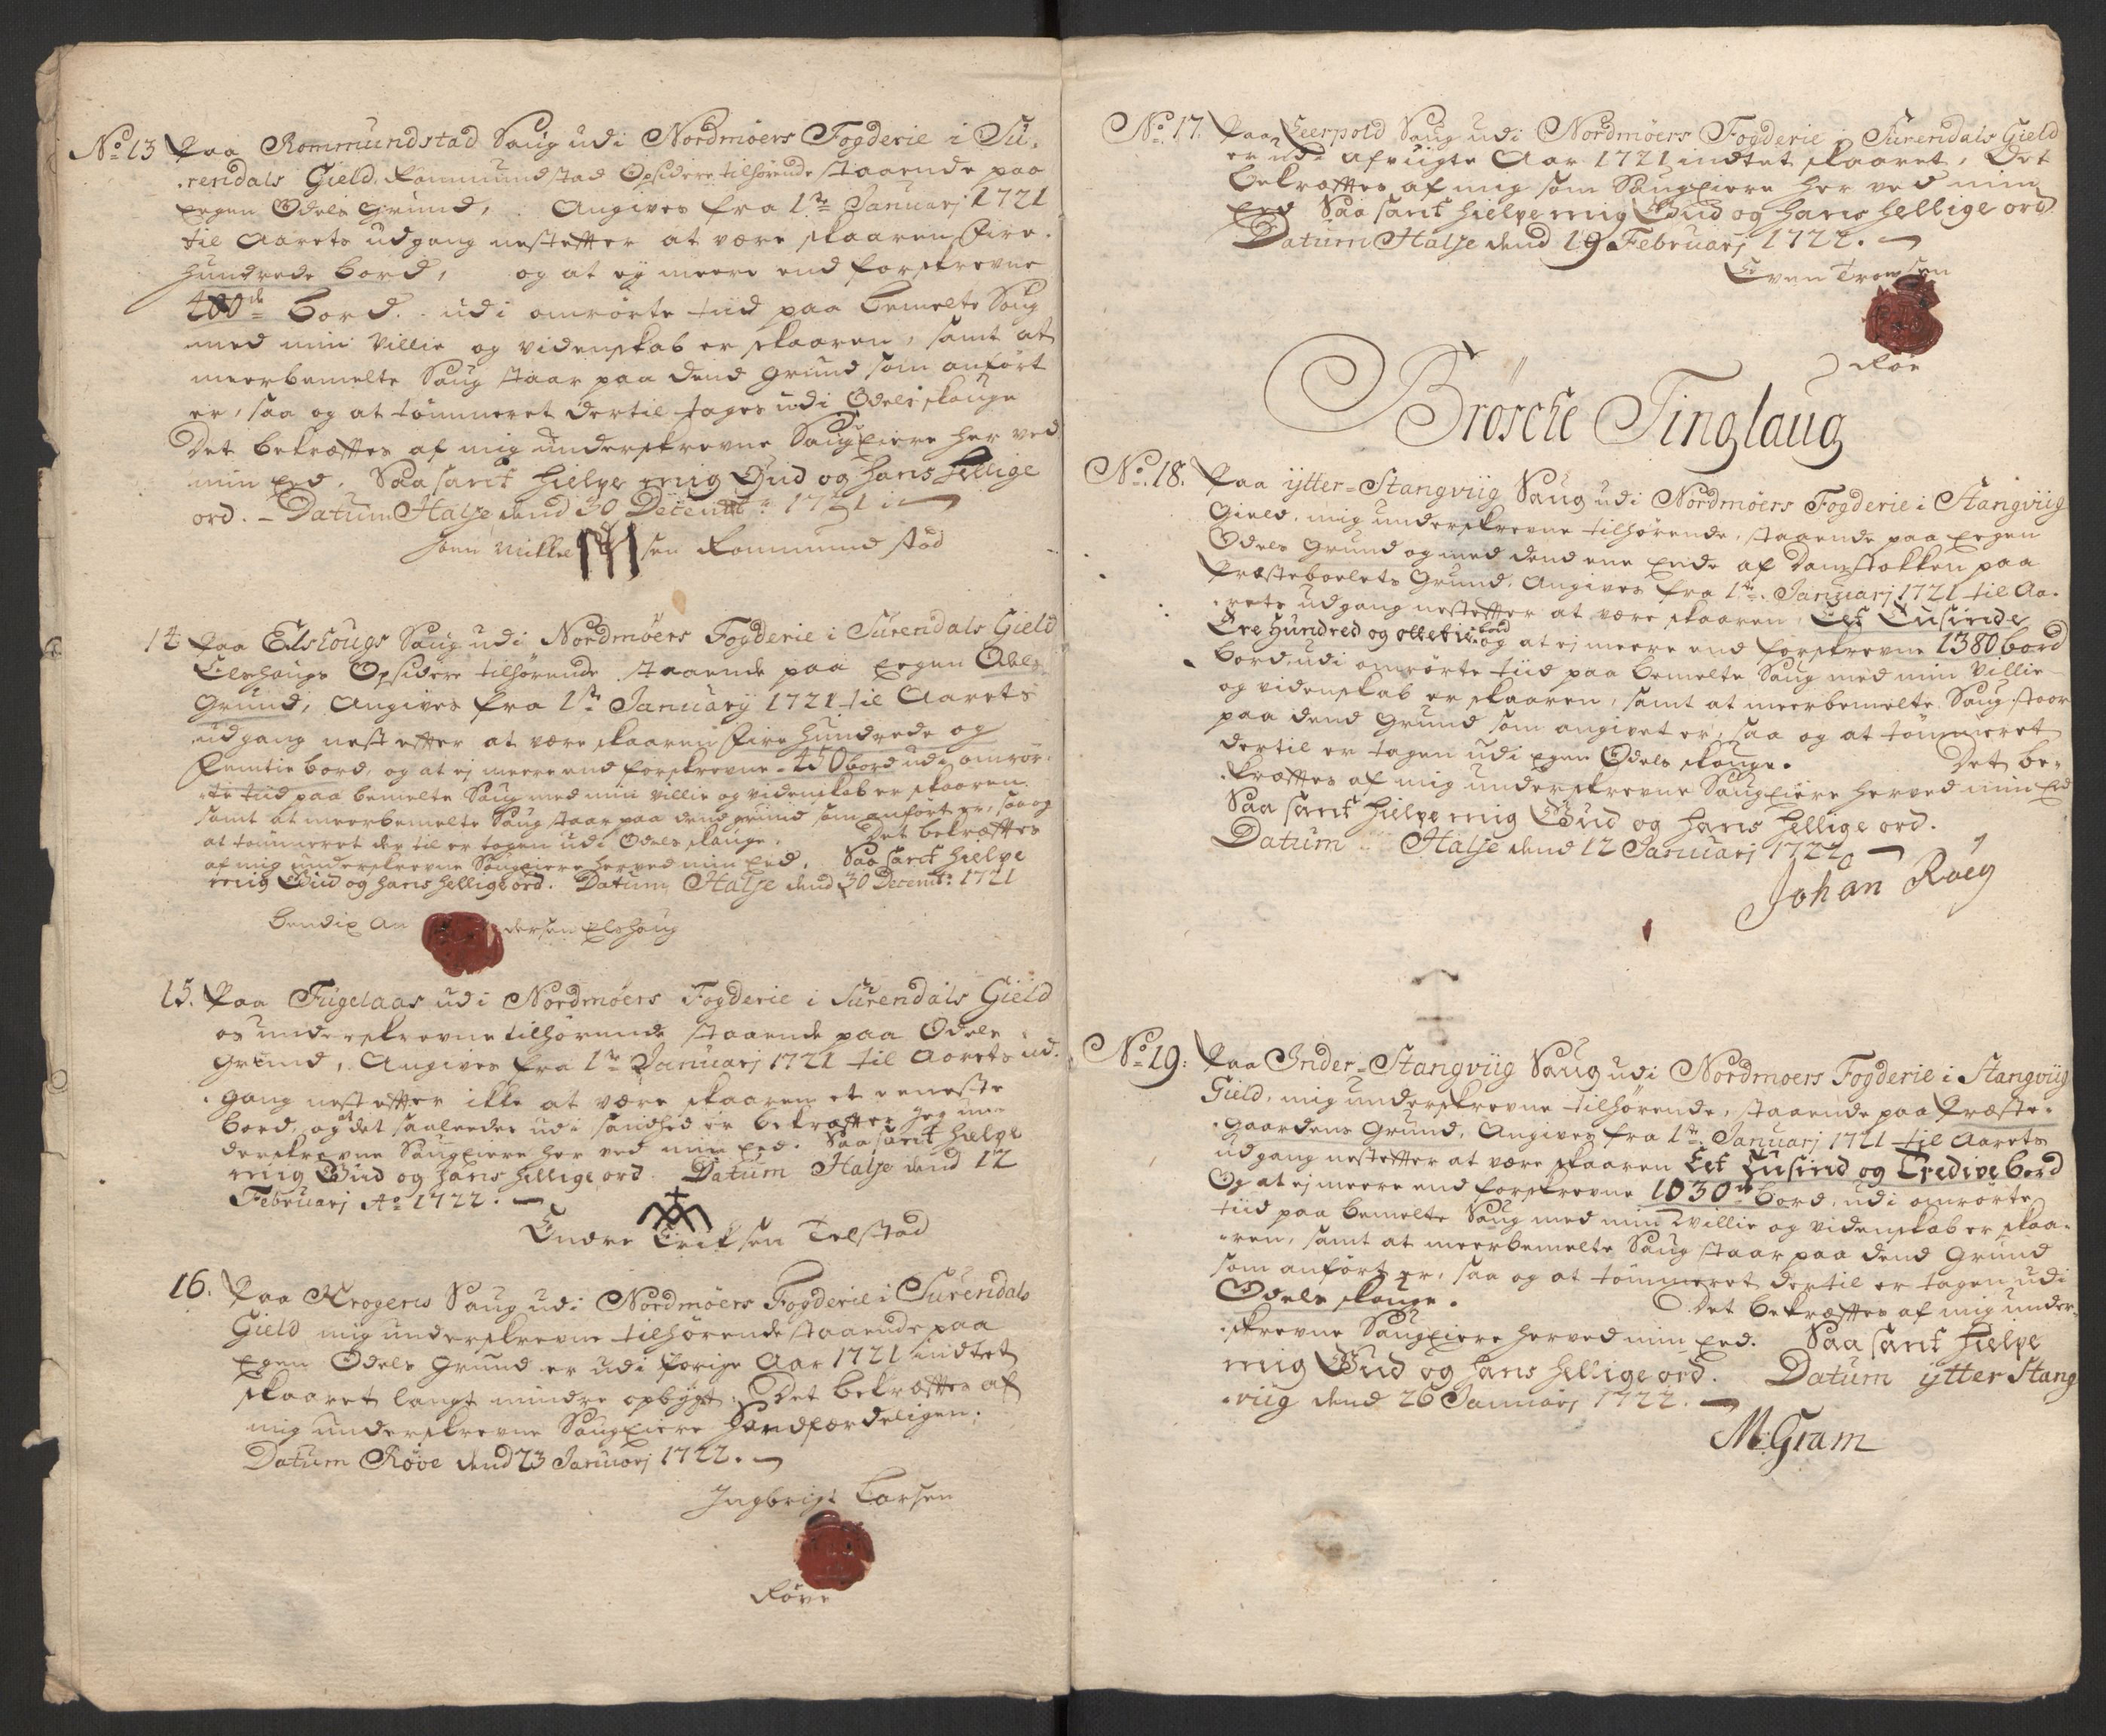 No 13 Paa Rommundstad Saug udi Nordmøers Fogderie i Su-
rendals Gield, Rommundstad Opsidere tilhørende staaende paa
Eegen Odels Grund, Angives fra 1te Januarj 1721
til Aarets udgang nestefter at være skaaren Fire-
hundrede bord, og at ey meere end forskrevne
400de bord. udi omrørte tiid paa bemelte Saug
med min Villie og videnskab er skaaren, samt at
meerbemelte Saug staar paa dend Grund som anført
er, saa og at tømmeret dertil tages udi Odels skouge
Det bekræfftes af mig underskrevne SaugEiere her ved
min Eed. Saa sant hielpe mig Gud og hans hellige
ord. Datum Halse dend 30 Decembr: 1721
Joen Mikkelsen Rommundstad
14 Paa Elshougs Saug udi Nordmøers Fogderie i Surendals Gield
Elshougs Opsidere tilhørende staaende paa Eegen Odels
Grund, Angives fra 1te January 1721 til Aarets
udgang nest efter at være skaaren Fire Hundrede og
Femtie bord, og at ej meere end forskrevne 450 bord udi omrør-
te tiid paa bemelte Saug med min villie og videnskab er skaaren
samt at meerbemelte Saug staar paa dend grund som anført er, saa og
at tømmeret der til er tagen udi Odels skouge. Det bekræfftes
af mig underskrevne Saugeiere herved min Eed. Saa sant hielpe
mig Gud og hans hellige ord. Datum Halse dend 30 Decembr: 1721
Bendix Andersen Elshoug
15. Paa Fugelaas udi Nordmøers Fogderie i Surendals Gield
os underskrevne tilhørende staaende paa Odels
Grund, Angives fra 1te Januarj 1721 til Aarets ud-
gang nest efter ikke at være skaaren et eeneste
bord, og at det saaleedes udi sandhed er bekræfter jeg un-
derskrevne Saugeiere her ved min Eed. Saa sant hielpe
mig Gud og hans hellige ord. Datum Halse dend 12
Februarj Ao 1722.
Endre Eriksen Telstad
16. Paa Krogens Saug udi Nordmøers Fogderie i Surendals
Gield mig underskrevne tilhørende staaende paa
Egen Odels Grund er udi forige Aar 1721 indtet
skaaret langt mindre opbygt; Det bekræfftes af
mig underskrevne SaugEiere Handfærdeligen;
Datum Røve dend 23 Januarj 1722.
Ingbrigt Larsen
Røve
No. 17. Paa Saug udi Nordmøers Fogderie i Surendals Gield
er udi afvigte Aar 1721 indtet skaaret, Det
bekræfftes af mig som SaugEiere her ved min
Eed Saa sant hielpe mig Gud og hans hellige ord
Datum Halse dend 19 Februarj 1722.
Even
Røe
Brøsche Tinglaug
No. 18. Paa ytter-Stangviig Saug udi Nordmøers Fogderie i Stangviig
Gield, mig underskrevne tilhørende, staaende paa Eegen
Odels Grund og med dend ene Ende af Damstokken paa
Præsteboelets Grund, Angives fra 1te Januarj 1721 til Aa-
rets udgang nestefter at være skaaren, Eet Tusinde
Tre Hundred og ottetie bord og at ej meere end forskrevne 1380 bord
bord, udi omrørte tiid paa bemelte Saug med min Villie
og videnskab er skaaren, samt at meerbemelte Saug staar
paa dend Grund som angivet er, saa og at tømmeret
dertil er tagen udi egen Odels skouge. Det be-
kræfftes af mig underskrevne SaugEiere herved min Eed
Saa sant hielpe mig Gud og hans hellige ord.
Datum Halse dend 12 Januarj 1722
Johan Røeg
No 19: Paa Inder-Stangviig Saug udi Nordmoers Fogderie i Stangviig
Gield, mig underskrevne tilhørende, staaende paa Præste-
gaardens Grund, Angives fra 1te Januarj 1721 til Aarets
udgang nestefter at være skaaren Eet Tusind og Tredive bord
Og at ej meere end forskrevne 1030 bord, udi omrørte
tiid paa bemelte Saug med min Villie og videnskab er skaa-
ren, samt at meerbemelte Saug staar paa dend Grund
som anført er, saa og at tømmeret dertil er tagen udi
Odels skouge. Det bekræfftes af mig under-
skrevne SaugEiere herved min Eed. Saa sant hielpe
mig Gud og hans hellige ord. Datum ytter Stang
viig dend 26 Januarj 1722.
M: Gram